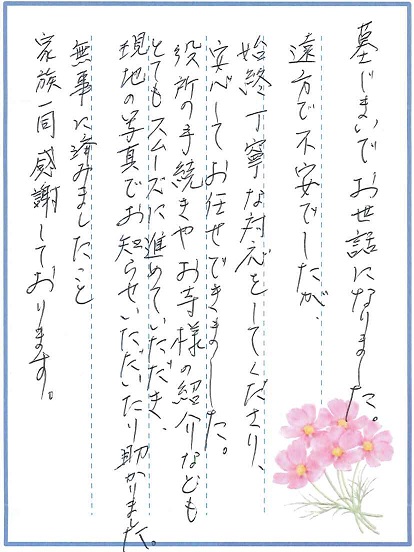 墓じまいでお世話になりました。
遠方で不安でしたが、
始終丁寧な対応をしてくださり、
安心してお任せできました。
役所の手続きやお寺様の紹介なども
とてもスムーズに進めていただき、
現地の写真でお知らせいただいたり助かりました。
無事に済みましたこと
家族一同感謝しております。